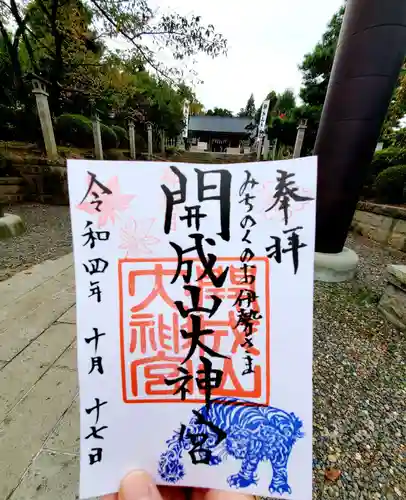 奉拝
みちのくのお伊勢さま
開成山大神宮
令和四年十月十七日
開成山
大神宮